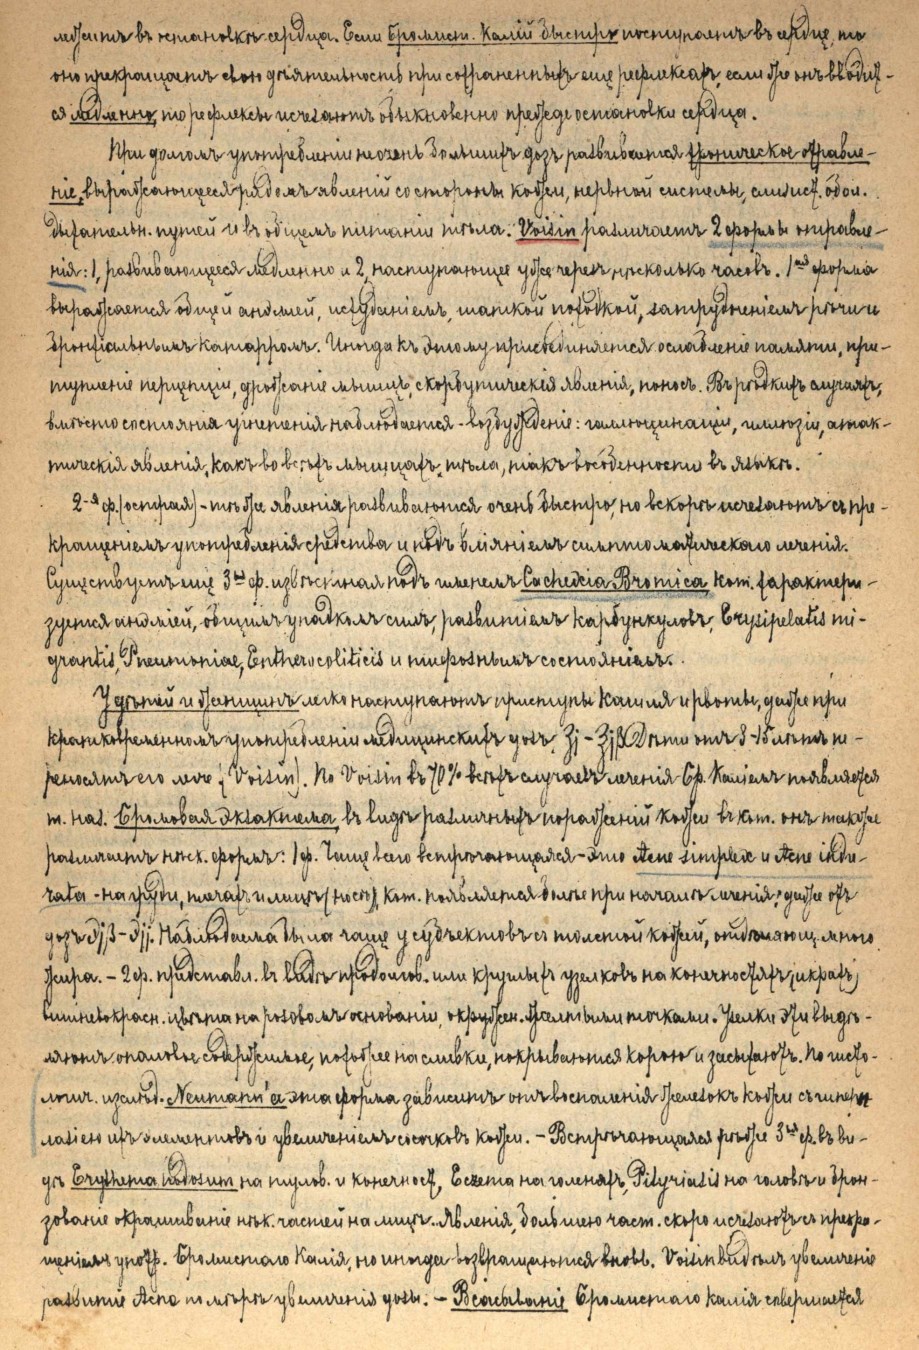 лежитъ въ остановкѣ сердца. Если бромист. Калій быстро поступаетъ въ сердце, то
оно прекращаетъ свою дѣятельность при сохраненныхъ еще рефлексахъ, если же онъ вводит-
ся медленно, то рефлексы исчезаютъ обыкновенно прежде остановки сердца.
При долгомъ употребленіи не очень большихъ дозъ развивается хроническое отравле-
ніе, выражающееся рядомъ явленій со стороны кожи, нервной системы, слизист. обол.
дыхательн. путей и въ общемъ питаніи тѣла. Voisin различаетъ 2 формы отравле-
нія: 1, развивающееся медленно и 2, наступающее уже черезъ нѣсколько часовъ. 1ая форма
выражается общей анэміей, исхуданіемъ, шаткой походкой, затрудненіемъ рѣчи и
бронхіальнымъ катарромъ. Иногда къ этому присоединяется ослабленіе памяти, при-
тупленіе перцепціи, дрожаніе мышцъ, скорбутическія явленія, поносъ. Въ рѣдкихъ случаяхъ,
вмѣсто состоянія угнетенія наблюдается - возбужденіе: галлюцинаціи, иллюзіи, атак-
тическія явленія, какъ во всѣхъ мышцахъ тѣла, такъ въ особенности въ языкѣ.
2-я ф. (острая) - тѣже явленія развиваются очень быстро, но вскорѣ исчезаютъ съ пре-
кращеніемъ употребленія средства и подъ вліяніемъ симптоматическаго леченія.
Существуетъ еще 3ья ф. извѣстная подъ именемъ Cachexia Bromica, кот. характери-
зуется анэміей, общимъ упадкомъ силъ, развитіемъ карбункуловъ, Erysipelatis mi-
grantis, Pneumoniae, Entherocoliticis и тифознымъ состояніемъ.
У дѣтей и женщинъ легко наступаютъ приступы кашля и рвоты, даже при
кратковременномъ употребленіи медицинскихъ дозъ Дѣти отъ 3-15 лѣтъ пе-
реносятъ его легче (Voisin). По Voisin въ 70% всѣхъ случаевъ леченія Бр. Каліемъ появляется
т. наз. Бромовая экзантема, въ видѣ различныхъ пораженій кожи въ кот. онъ также
различаетъ нѣск. формъ: 1 ф. Чаще всего встрѣчающаяся - это Acne simplex и Acne indu-
rata - на груди, плечахъ и лицѣ (носѣ), кот. появляется болѣе при началѣ леченія; даже отъ
дозъ Наблюдаема была чаще у субъектовъ съ толстой кожей, отдѣляющ. много
жира. - 2 ф. представл. въ видѣ продолгов. или круглыхъ узелковъ на конечностяхъ (икрахъ)
вишнево красн. цвѣта на розовомъ основаніи, окружен. желтыми точками. Узелки эти выдѣ-
ляютъ опаловое содержимое, похожее на сливки, покрываются корою и засыхаютъ. По гисто-
логич. изслѣд. Neumann'а эта форма зависитъ отъ воспаленія железокъ кожи съ
ихъ элементовъ и увеличеніемъ сосочковъ кожи. - Встрѣчающаяся рѣже 3ья ф. въ ви-
дѣ Erythema nodosum на тулов. и конечност., Eczema на голеняхъ, Pityriasis на головѣ и брон-
зованіе окрашиваніе нѣк. частей на лицѣ. Явленія, большею част. скоро исчезаютъ съ прекра-
щеніемъ употр. Бромистаго Калія, но иногда возвращаются вновь. Voisin видѣлъ увеличеніе
развитіе Acne по мѣрѣ увеличенія дозы. - Всасываніе Бромистаго калія совершается